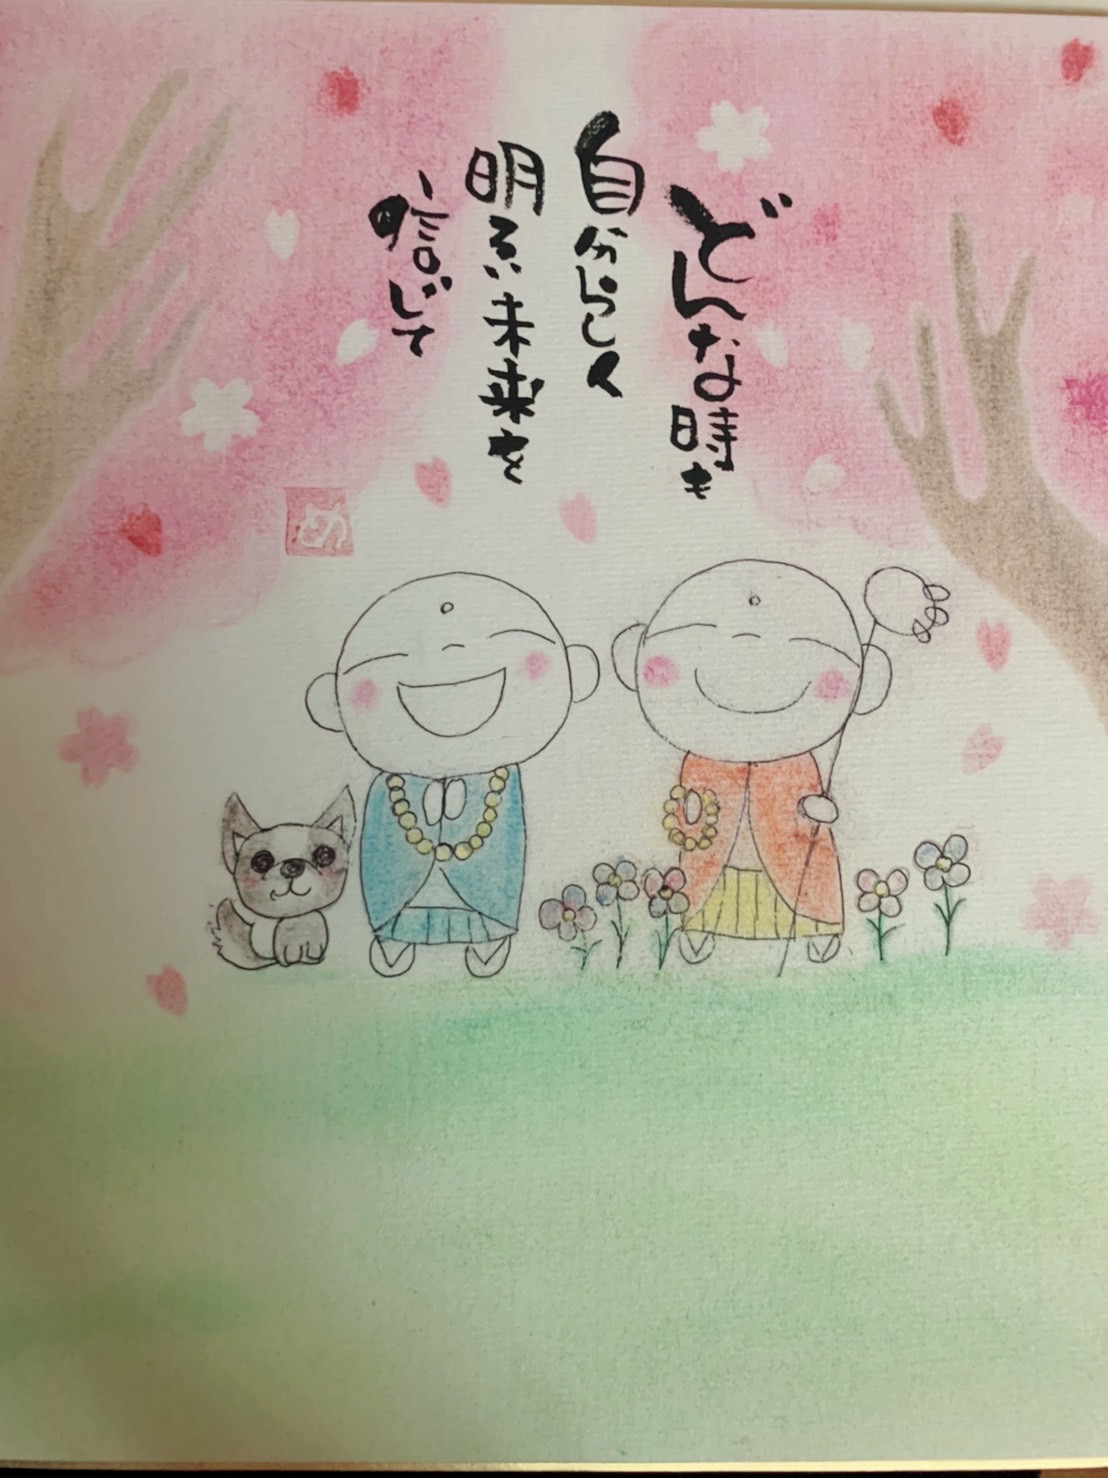 どんな時も
自分らしく
明るい未来を
信じて
め